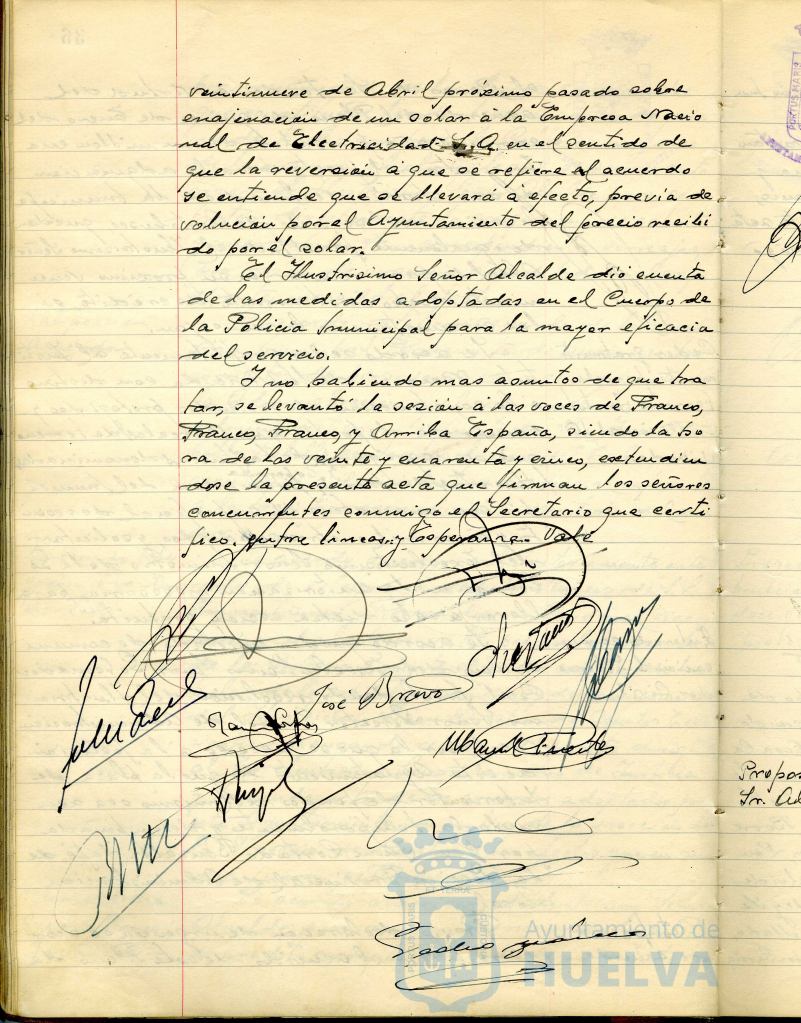 veintinueve de Abril próximo pasado sobre
enajenación de un solar á la Empresa Nacio
nal de Electricidad S. A. en el sentido de
que la reversión á que se refiere el acuerdo
se entiende que se llevará á efecto, previa de
volución por el Ayuntamiento del precio recibi
do por el solar.
El Ilustrisimo Señor Alcalde dió cuenta
de las medidas adoptadas en el Cuerpo de
la Policia municipal para la mayor eficacia
del servicio.
Y no habiendo mas asuntos de que tra
tar, se levantó la sesión á las voces de Franco,
Franco, Franco, y Arriba España, siendo la ho
ra de las veinte y cuarenta y cinco, extendien
dose la presente acta que firman los señores
concurrentes conmigo el Secretario que certi
fico. entre lineas: y Esperanza. Vale
José Bravo
Manuel Fuentes
Pedro
Propos
Sr. Al
Ayuntamiento de
HUELVA